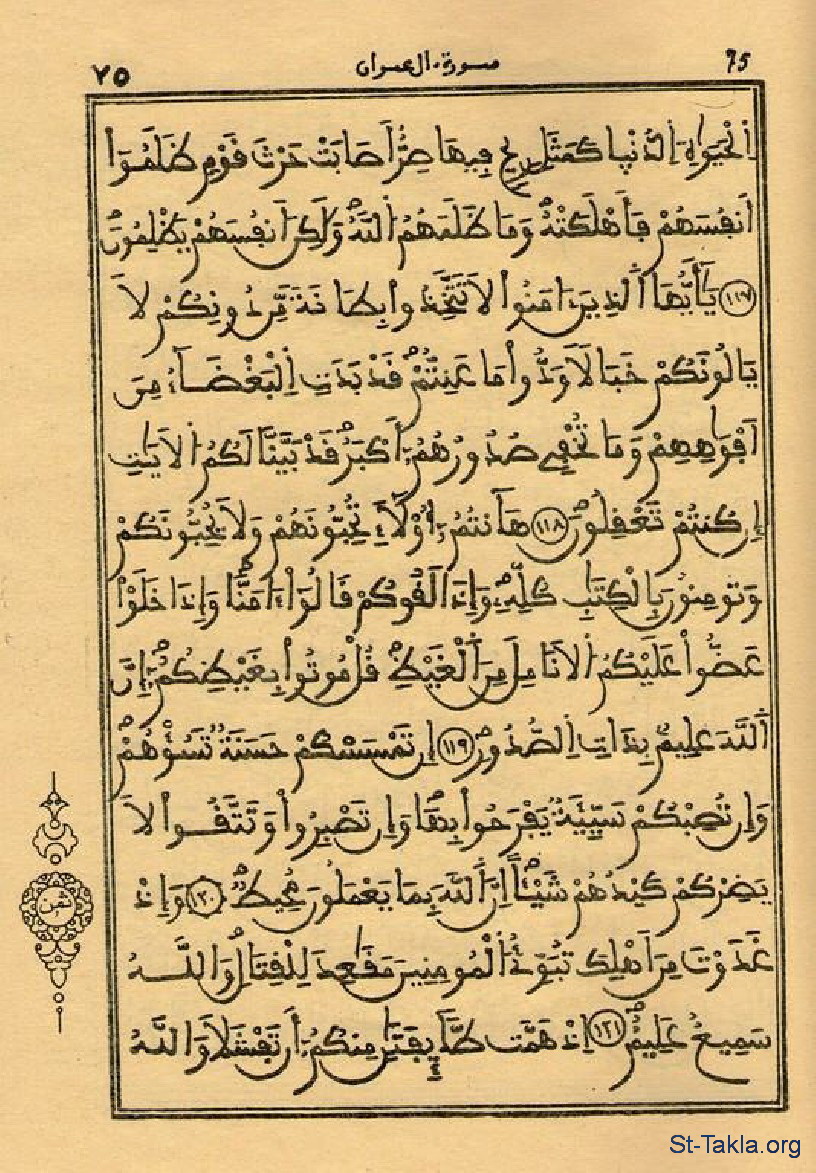 ٧٥ سورة ءال عمران 75
اِ۬لْحَيَوٰةِ اِ۬لدُّنْي۪ا كَمَثَلِ رِيحٖ فِيهَا صِرٌّ اَصَابَتْ حَرْثَ قَوْمٖ ظَلَمُوٓاْ
أَنفُسَهُمْ فَأَهْلَكَتْهُۖ وَمَا ظَلَمَهُمُ اُ۬للَّهُۖ وَلَٰكِنَ اَنفُسَهُمْ يَظْلِمُونَۖ
١١٧ يَٰٓأَيُّهَا اَ۬لذِينَ ءَامَنُواْ لَا تَتَّخِذُواْ بِطَانَةٗ مِّن دُونِكُمْ لَا
يَالُونَكُمْ خَبَالاٗ وَدُّواْ مَا عَنِتُّمْۖ قَدْ بَدَتِ اِ۬لْبَغْضَآءُ مِنَ
اَفْوَٰهِهِمْ وَمَا تُخْفِے صُدُورُهُمُۥٓ أَكْبَرُۖ قَدْ بَيَّنَّا لَكُمُ اُ۬لَايَٰتِ
إِن كُنتُمْ تَعْقِلُونَۖ ١١٨ هَٰٓأَنتُمُۥٓ أُوْلَآءِ تُحِبُّونَهُمْ وَلَا يُحِبُّونَكُمْ
وَتُومِنُونَ بِالْكِتَٰبِ كُلِّهِۦۖ وَإِذَا لَقُوكُمْ قَالُوٓاْ ءَامَنَّاۖ وَإِذَا خَلَوْاْ
عَضُّواْ عَلَيْكُمُ اُ۬لَانَامِلَ مِنَ اَ۬لْغَيْظِۖ قُلْ مُوتُواْ بِغَيْظِكُمُۥٓۖ إِنَّ
اَ۬للَّهَ عَلِيمُۢ بِذَاتِ اِ۬لصُّدُورِۖ ١١٩ إِن تَمْسَسْكُمْ حَسَنَةٞ تَسُؤْهُمْۖ
وَإِن تُصِبْكُمْ سَيِّئَةٞ يَفْرَحُواْ بِهَاۖ وَإِن تَصْبِرُواْ وَتَتَّقُواْ لَا
يَضِرْكُمْ كَيْدُهُمْ شَيْـٔاًۖ اِنَّ اَ۬للَّهَ بِمَا يَعْمَلُونَ مُحِيطٞۖ ١٢٠ وَإِذْ
غَدَوْتَ مِنَ اَهْلِكَ تُبَوِّئُ اُ۬لْمُومِنِينَ مَقَٰعِدَ لِلْقِتَالِۖ وَاللَّهُ
سَمِيعٌ عَلِيمٌۖ ١٢١ اِذْ هَمَّت طَّآئِفَتَٰنِ مِنكُمُۥٓ أَن تَفْشَلَا وَاللَّهُ
ثمن
St-Takla.org